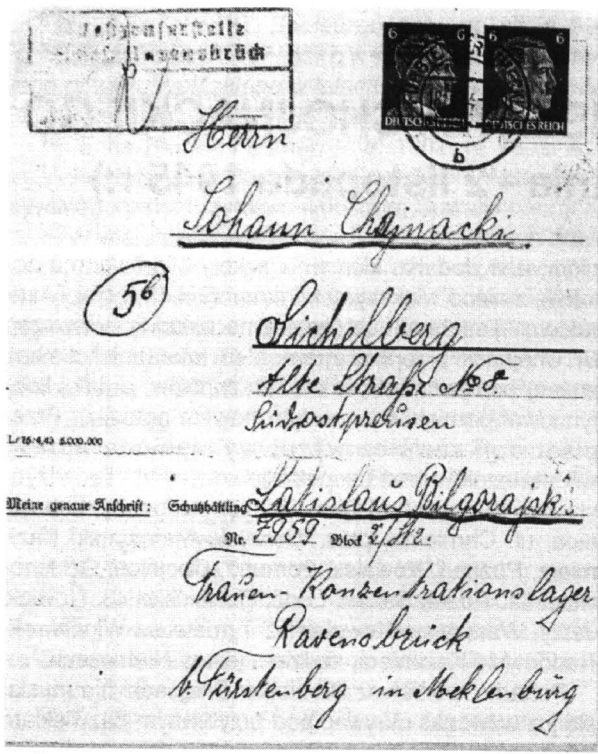 6 6
DEUTSCHES REICH DEUTSCHES REICH
b
Herrn
Johann Chojnacki
5b
Sichelberg
Alte Straße No
Südostpreusen
L/15/4,43 5.000.000
Meine genaue Anschrift: Schutzhäftling Latislaus Bilgorajski
Nr. 7959 Block 2/A2
Frauen-Konzentrationslager
Ravensbrück
b. Fürstenberg in Meklenburg